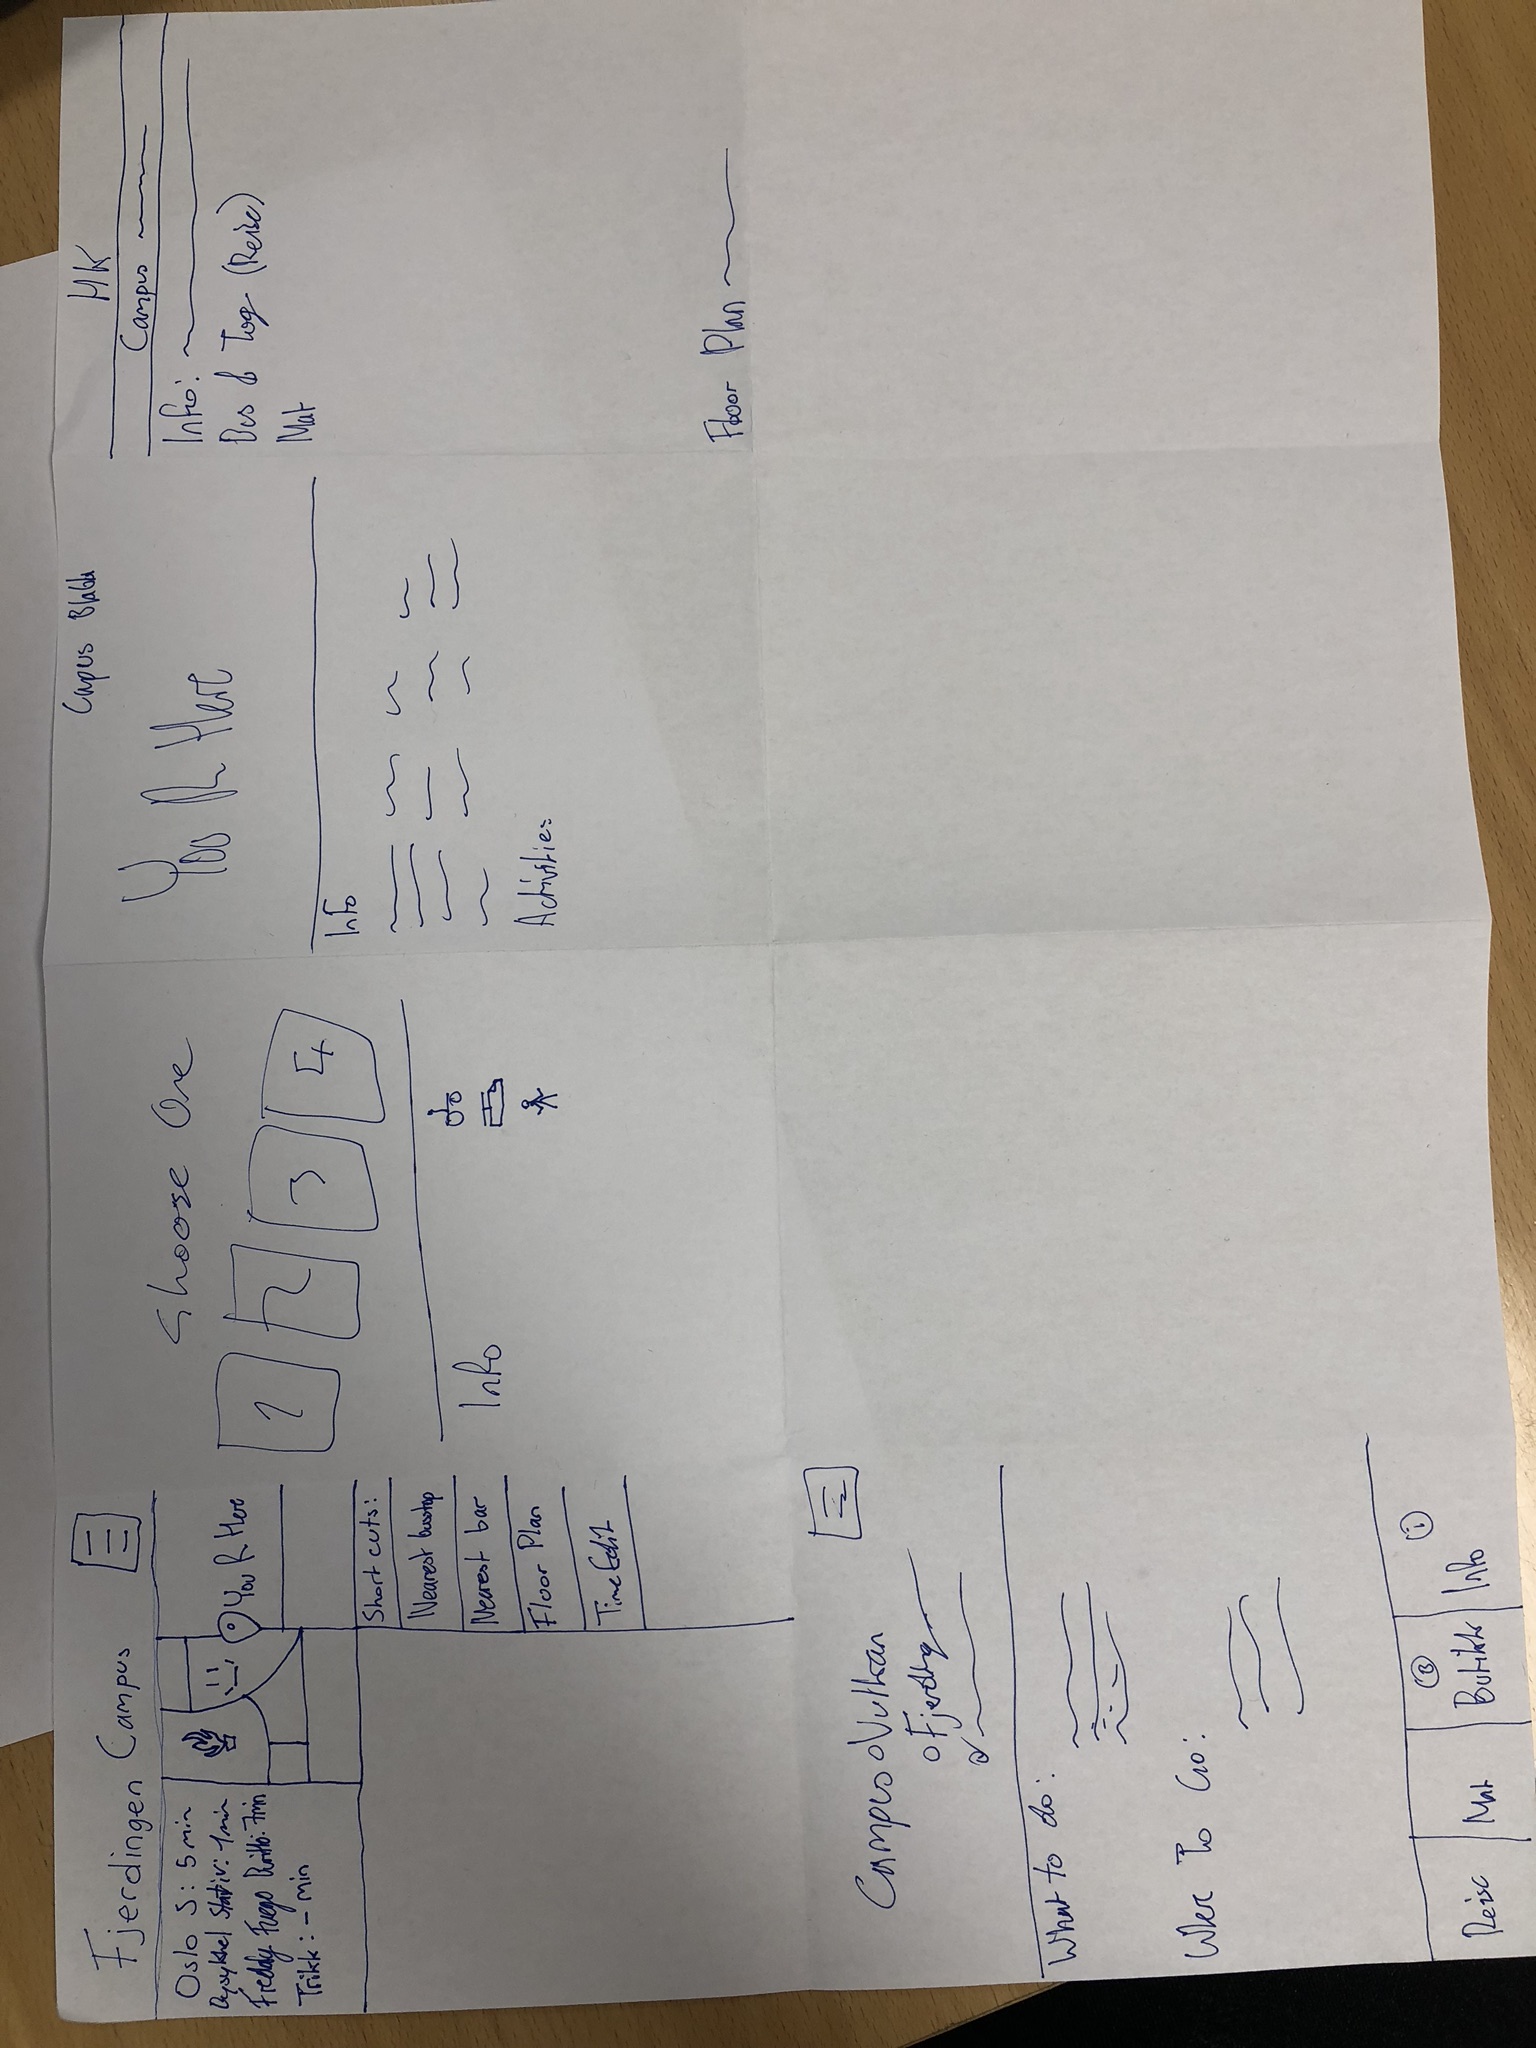 Fjerdingen Campus
Oslo S: 5 min
Bysykkel Stativ: 1 min
Freddy Fuego Burrito: 7min
Trikk: - min
You R Here
Short cuts:
Nearest busstop
Nearest bar
Floor Plan
TimeEdit
Choose One
1
2
3
4
Info
Capus Blabla
You R Here
Info
Activities
HK
Campus
Info:
Bus & Tog (Reise)
Mat
Floor Plan
Campus o Vulkan
o Fjerding
What to do:
Wher To Go:
Reise
Mat
Butikk
Info
i